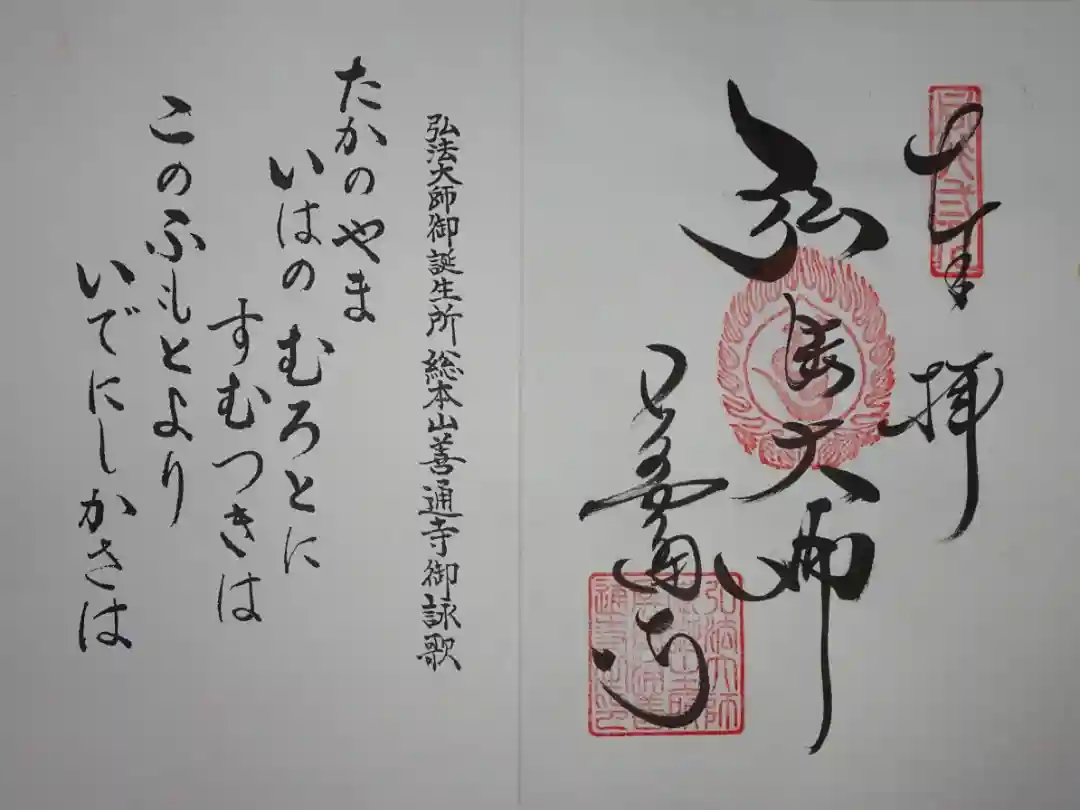 奉拝
弘法大師
善通寺
弘法大師
弘法大師御誕生所 総本山善通寺御詠歌
たかのやま
いはの むろとに
すむつきは
このふもとより
いでにしかさは